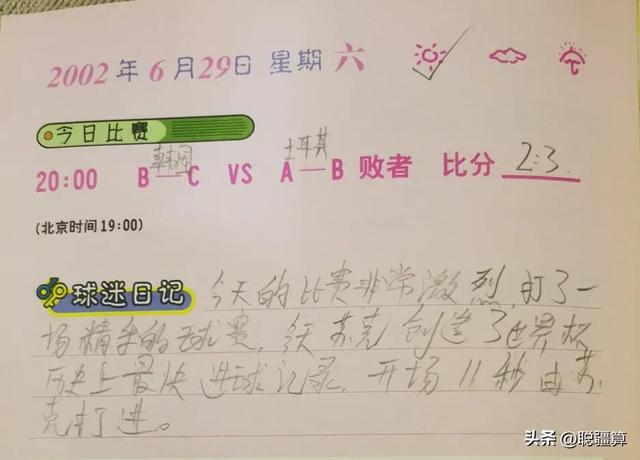 2002年6月29日 星期六
今日比赛
韩国 土耳其
20:00 B—C VS A—B 败者 比分 2:3
(北京时间19:00)
球迷日记 今天的比赛非常激烈,打了一
场精彩的球赛,今天苏克创造了世界杯
历史上最快进球记录.开场11秒由苏
克打进。
头条@聪疆算